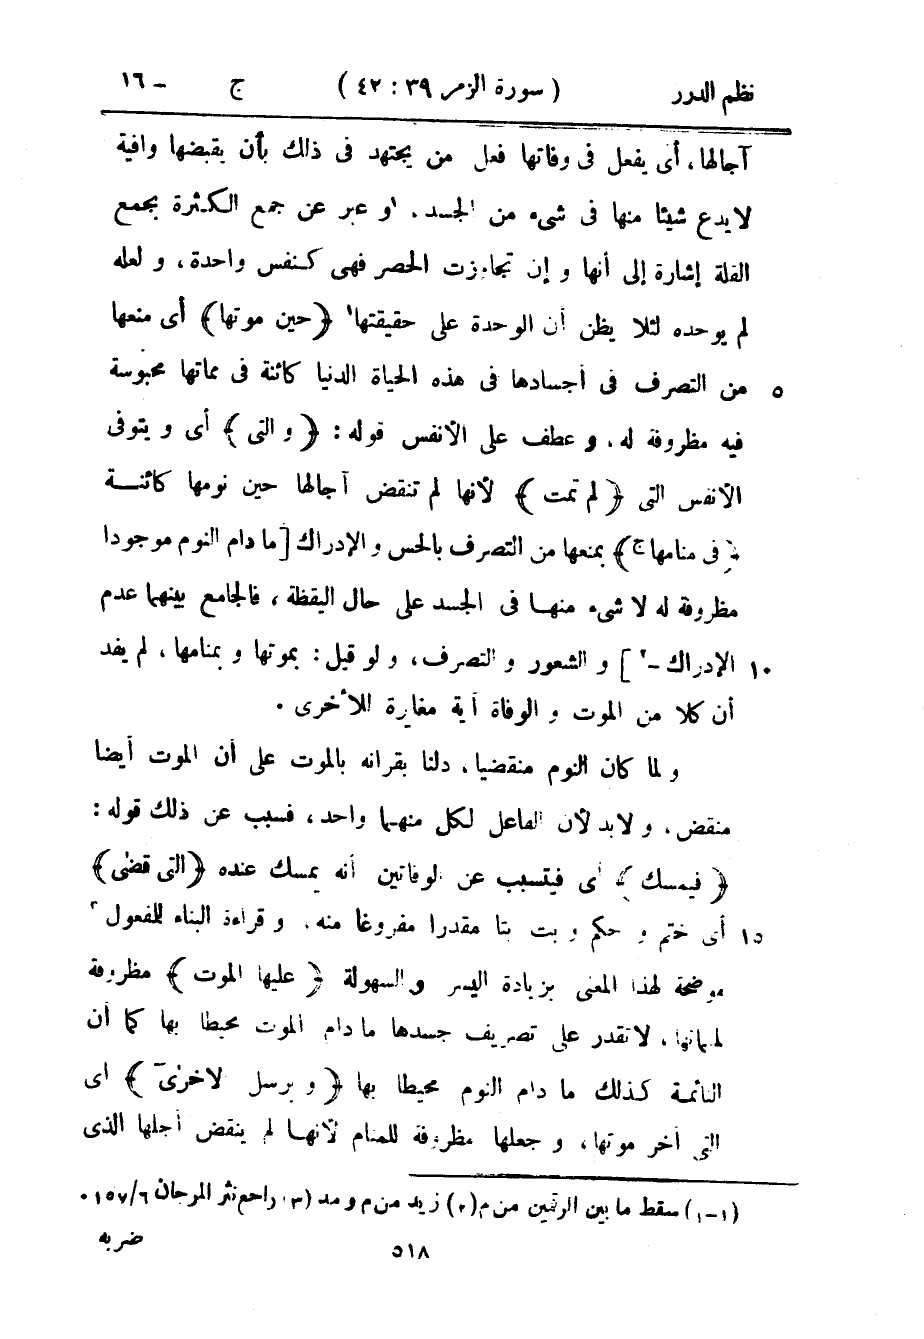 نظم الدرر ( سورة الزمر ٣٩ : ٤٢ ) ج – ١٦
آجالها، أى يفعل فى وفاتها فعل من يجتهد فى ذلك بأن يقبضها وافية
لا يدع شيئا منها فى شىء من الجسد. ١و عبر عن جمع الكثرة بجمع
القلة إشارة إلى أنها و إن تجاوزت الحصر فهى كنفس واحدة، و لعله
لم يوحده لئلا يظن أن الوحدة على حقيقتها١ ﴿حين موتها﴾ أى منعها
من التصرف فى أجسادها فى هذه الحياة الدنيا كائنة فى مماتها محبوسة ٥
فيه مظروفة له. و عطف على الأنفس قوله: ﴿و التى﴾ أى و يتوفى
الأنفس التى ﴿لم تمت﴾ لأنها لم تنقض آجالها حين نومها كائنة
﴿فى منامها ج﴾ بمنعها من التصرف بالحس و الإدراك [ما دام النوم موجودا
مظروفة له لا شىء منها فى الجسد على حال اليقظة، فالجامع بينهما عدم
الإدراك –٢] و الشعور و التصرف، و لو قيل: بموتها و بمنامها، لم يفد ١٠
أن كلا من الموت و الوفاة آية مغايرة للأخرى .
و لما كان النوم منقضيا، دلنا بقرانه بالموت على أن الموت أيضا
منقض، و لابد لأن الفاعل لكل منهما واحد، فسبب عن ذلك قوله:
﴿فيمسك﴾ أى فيتسبب عن الوفاتين أنه يمسك عنده ﴿التى قضى﴾
أى ختم و حكم و بت بتا مقدرا مفروغا منه. و قراءة البناء للمفعول٣ ١٥
موضحة لهذا المعنى بزيادة اليسر و السهولة ﴿عليها الموت﴾ مظروفة
لمماتها، لا تقدر على تصريف جسدها ما دام الموت محيطا بها كما أن
النائمة كذلك ما دام النوم محيطا بها ﴿و يرسل الاخرىٓ﴾ أى
التى أخر موتها، و جعلها مظروفة للمنام لأنها لم ينقض أجلها الذى
(١-١) سقط ما بين الرقمين من م (٢) زيد من م و مد (٣) راجع نثر المرجان ٦/١٥٧ .
ضربه
٥١٨